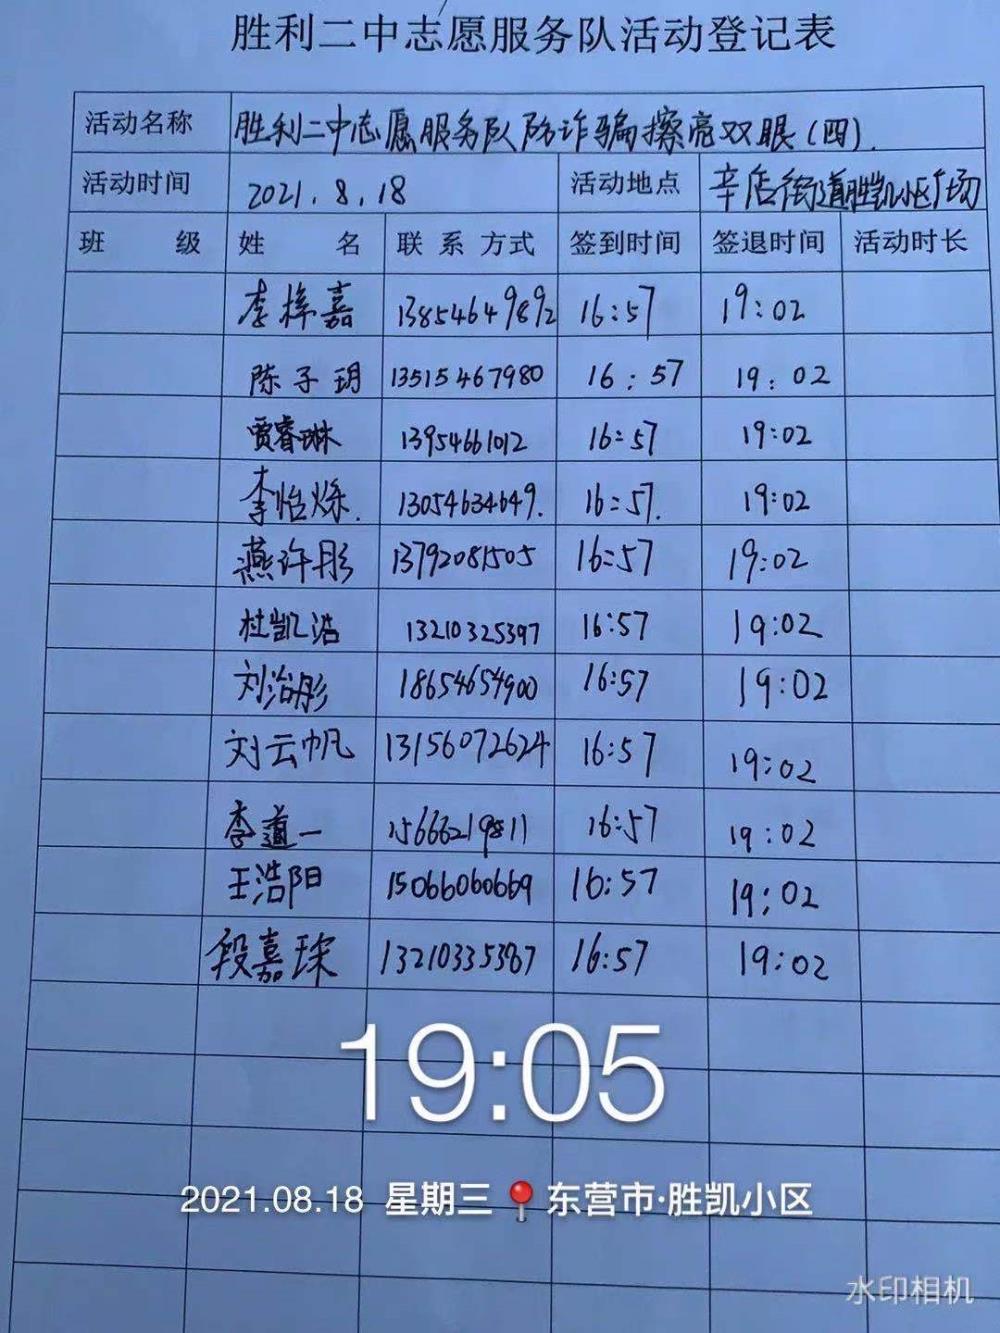 胜利二中志愿服务队活动登记表
活动名称 胜利二中志愿服务队防诈骗擦亮双眼(四).
活动时间 2021.8.18 活动地点 辛店街道胜凯小区广场
班 级 姓 名 联系方式 签到时间 签退时间 活动时长
李梓嘉 13854649892 16:57 19:02
陈子玥 13515467980 16:57 19:02
贾睿琳 13954661012 16:57 19:02
李怡烁. 13054634649. 16:57. 19:02
燕许彤 13792081505 16:57 19:02
杜凯浩 13210325397 16:57 19:02
刘滔彤 18654654900 16:57 19:02
刘云帆 13156072624 16:57 19:02
李道一 15666219811 16:57 19:02
王浩阳 15066060669 16:57 19:02
段嘉琛 13210335387 16:57 19:02
19:05
2021.08.18 星期三 东营市·胜凯小区
水印相机